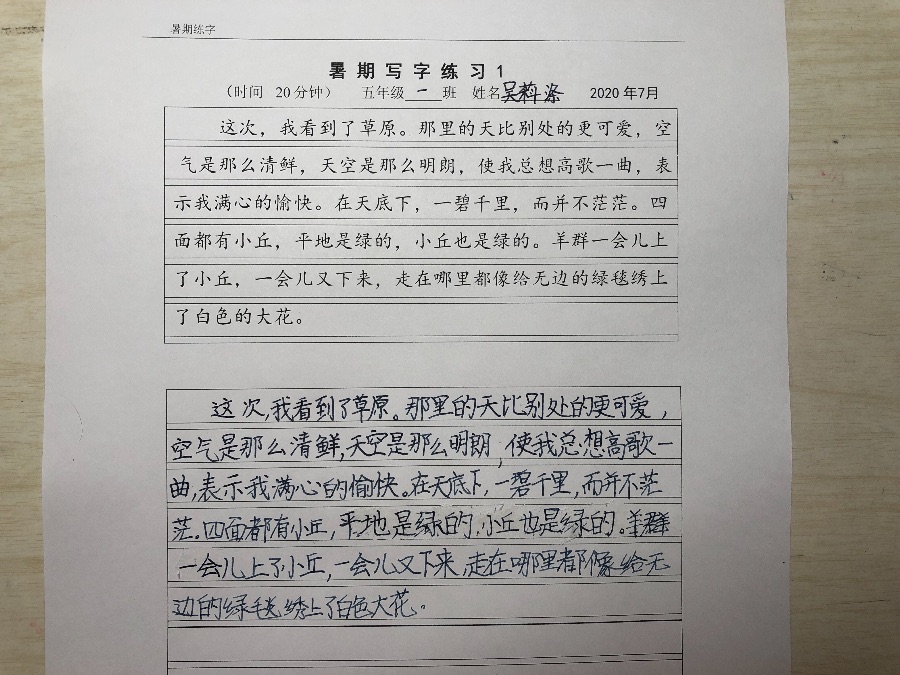 暑期练字
暑期写字练习1
（时间 20分钟） 五年级一班 姓名吴 涤 2020年7月
这次，我看到了草原。那里的天比别处的更可爱，空
气是那么清鲜，天空是那么明朗，使我总想高歌一曲，表
示我满心的愉快。在天底下，一碧千里，而并不茫茫。四
面都有小丘，平地是绿的，小丘也是绿的。羊群一会儿上
了小丘，一会儿又下来，走在哪里都像给无边的绿毯绣上
了白色的大花。
这次，我看到了草原。那里的天比别处的更可爱，
空气是那么清鲜，天空是那么明朗，使我总想高歌一
曲，表示我满心的愉快。在天底下，一碧千里，而并不茫
茫。四面都有小丘，平地是绿的，小丘也是绿的。羊群
一会儿上了小丘，一会儿又下来，走在哪里都像给无
边的绿毯绣上了白色大花。